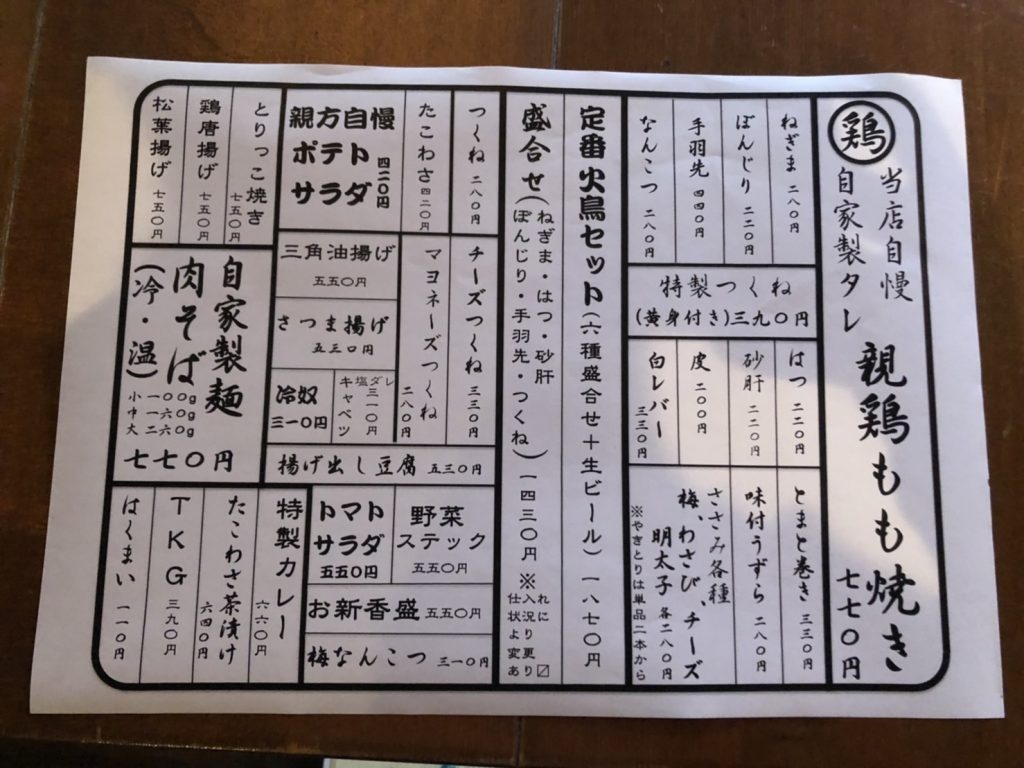 鶏
当店自慢
自家製タレ
親鶏もも焼き
七七〇円
ねぎま 二八〇円
ぼんじり 二二〇円
手羽先 四四〇円
なんこつ 二八〇円
特製つくね
(黄身付き)三九〇円
はつ 二二〇円
砂肝 二二〇円
皮 二〇〇円
白レバー 三三〇円
とまと巻き 三三〇円
味付うずら 二八〇円
ささみ各種
梅、わさび、チーズ
明太子 各二八〇円
※やきとりは単品二本から
定番火鳥セット(六種盛合せ+生ビール)一八七〇円
盛合せ(ねぎま・はつ・砂肝
ぼんじり・手羽先・つくね)一四三〇円
※仕入れ
状況に
より変更
あり〼
つくね 二八〇円
たこわさ 四二〇円
親方自慢
ポテト
サラダ
四二〇円
チーズつくね 三三〇円
マヨネーズつくね 二八〇円
三角油揚げ
五五〇円
さつま揚げ
五三〇円
塩ダレ
キャベツ
三一〇円
冷奴
三一〇円
揚げ出し豆腐 五三〇円
野菜
ステック
五五〇円
トマト
サラダ
五五〇円
お新香盛 五五〇円
梅なんこつ 三一〇円
とりっこ焼き 七五〇円
鶏唐揚げ 七五〇円
松葉揚げ 七五〇円
自家製麺
肉そば
(冷・温)
小一〇〇g
中一六〇g
大二六〇g
七七〇円
特製カレー 六六〇円
たこわさ茶漬け 六四〇円
TKG 三九〇円
はくまい 一一〇円